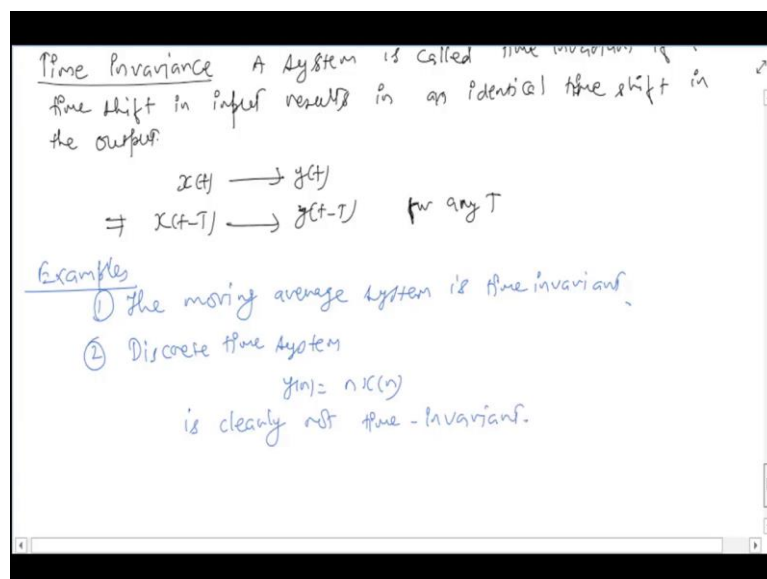 Time Invariance A system is called time invariant if
time shift in input results in an identical time shift in
the output.
x(t) → y(t)
⇒ x(t-T) → y(t-T) for any T
Examples
① The moving average system is time invariant.
② Discrete time system
y(n) = n x(n)
is clearly not time-invariant.